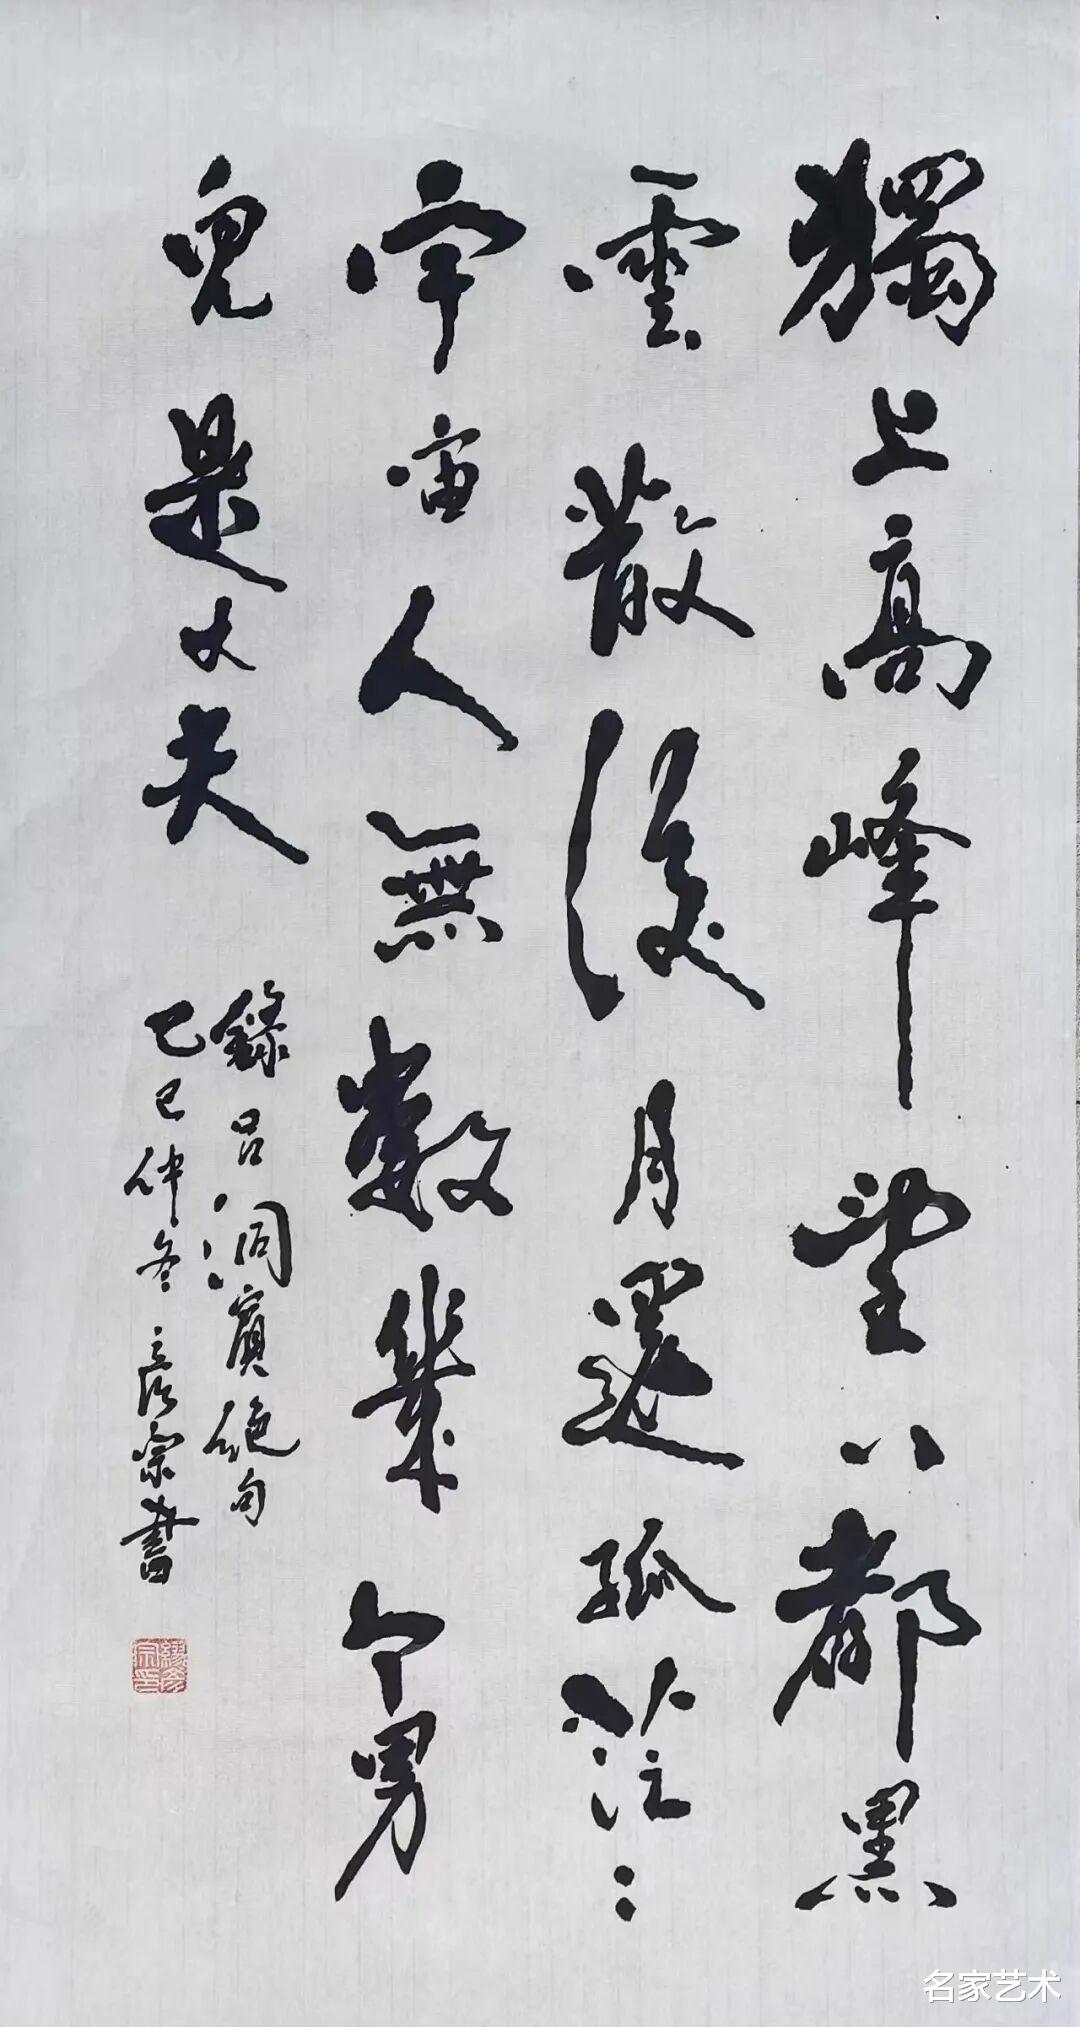 獨上高峰望八都黑
雲散後月還孤茫〻
宇宙人無數幾个男
兒是丈夫
錄呂洞賓絕句
己巳仲冬彦宗書
名家艺术